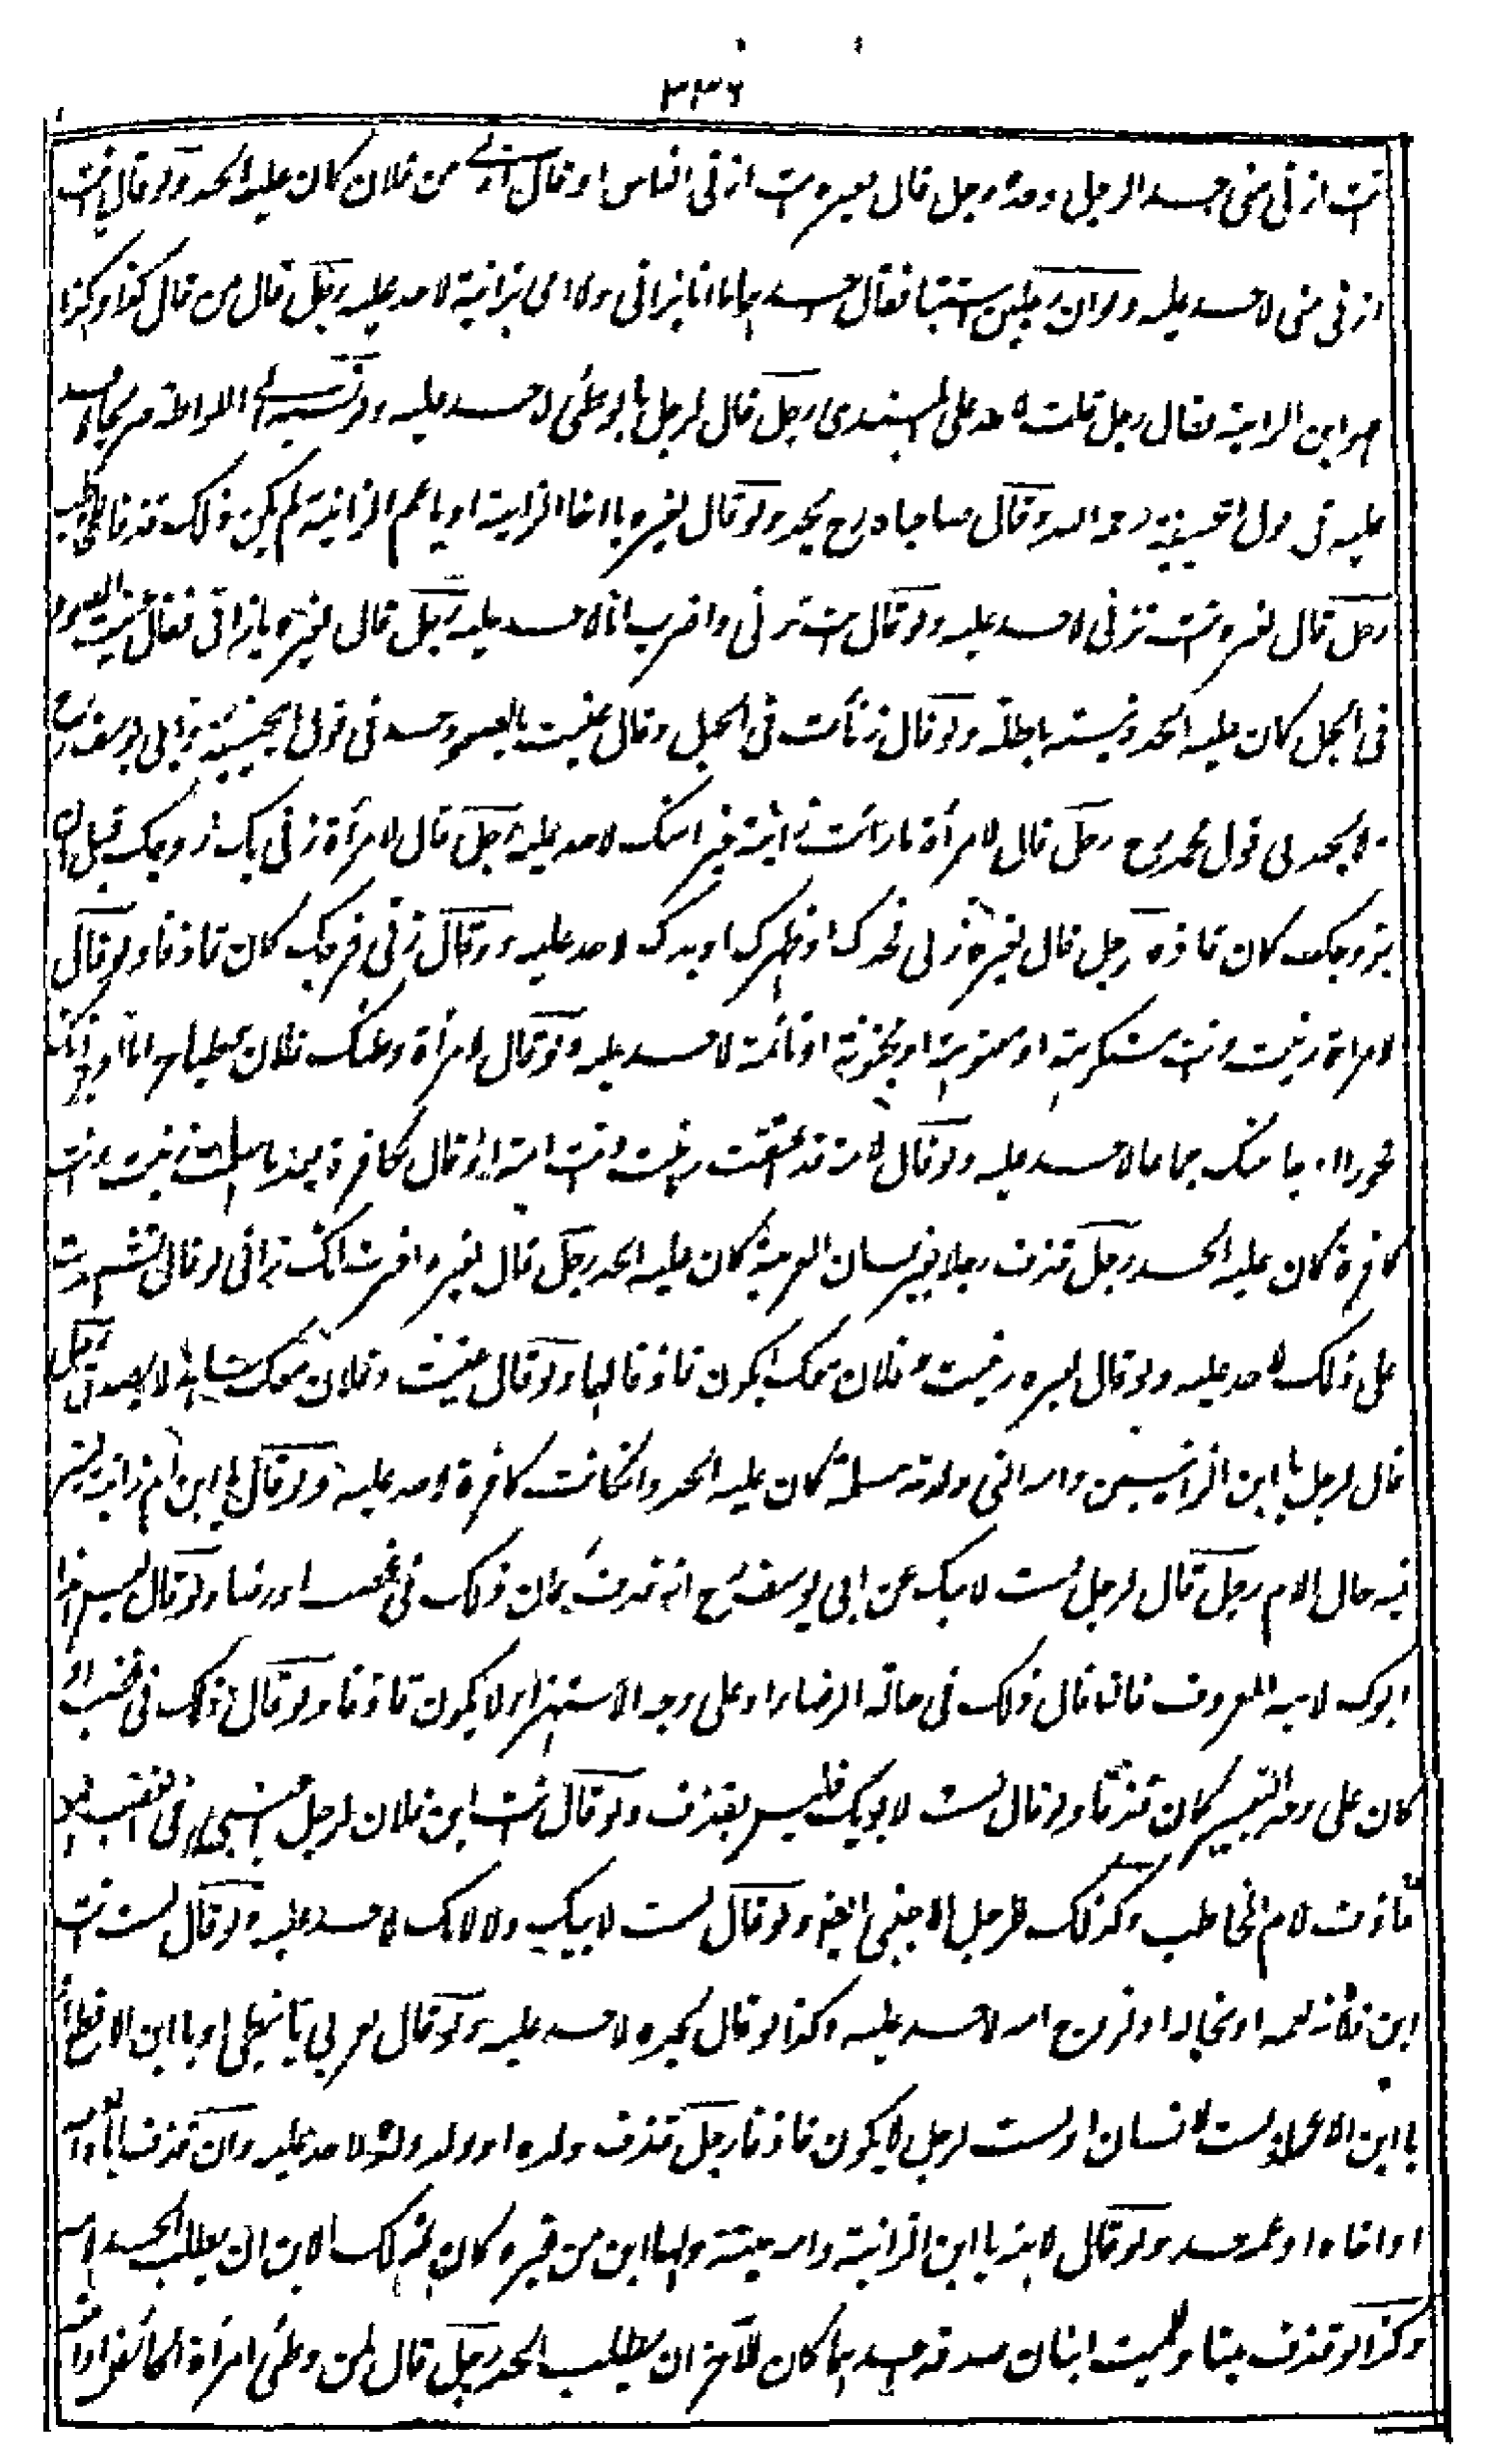 ٣٣٦
انت ازنى منى حد الرجل وحده رجل قال لغيره انت ازنى الناس او قال ازنى من فلان كان عليه الحد ولو قال انت
ازنى منى لا حد عليه ولو ان رجلين استبا فقال احدهما ما انا بزانى ولا امى بزانية لا حد عليه رجل قال من قال كذا وكذا
فهو ابن الزانية فقال رجل قلت لا حد على المبتدى رجل قال لرجل يا لوطى لا حد عليه ولو نسبه الى اللواطة صريحا لا حد
عليه فى قول ابى حنيفة رحمه الله وقال صاحباه رح يحد ولو قال لغيره يا اخا الزانية او يا عم الزانية لم يكن ذلك قذفا
رجل قال لغيره انت تزنى لا حد عليه ولو قال انت تزنى واضرب انا لا حد عليه رجل قال لغيره يا زانى فقال عنيت الصعود
فى الجبل كان عليه الحد ونيته باطلة ولو قال زنأت فى الجبل وقال عنيت الصعود حد فى قول ابى حنيفة وابى يوسف رح
ولا يحد فى قول محمد رح رجل قال لامرأة ما رأيت زانية خيرا منك لا حد عليه رجل قال لامرأة زنى بك زوجك قبل ان
يتزوجك كان قاذفا رجل قال لغيره زنى فخذك او ظهرك او يدك لا حد عليه ولو قال زنى فرجك كان قاذفا ولو قال
لامرأة زنيت وانت مستكرهة او معتوهة او مجنونة او نائمة لا حد عليه ولو قال لامرأة وطئك فلان وطيا حراما او زنى بك
فجورا او جامعك جماعا لا حد عليه ولو قال لامة قد عتقت زنيت وانت امة او قال لكافرة بعد ما اسلمت زنيت وانت
كافرة كان عليه الحد رجل قذف رجلا بغير لسان العربية كان عليه الحد رجل قال لغيره اخبرت انك زانى او قال اشهدت
على ذلك لا حد عليه ولو قال لغيره زنيت وفلان معك يكون قاذفا لهما ولو قال عنيت وفلان معك شاهدا لا يصدق رجل
قال لرجل يا ابن الزانيين وامه التى ولدته مسلمة كان عليه الحد وان كانت كافرة لا حد عليه ولو قال يا ابن ام زانية يعتبر
فيه حال الام رجل قال لرجل لست لابيك عن ابى يوسف رح انه قذف كان ذلك فى غضب او رضا ولو قال ليس هذا
ابوك لابيه المعروف فان قال ذلك فى حالة الرضا او على وجه الاستهزاء لا يكون قاذفا ولو قال ذلك فى غضب او
كان على وجه التعيير كان قذفا ولو قال لست لابويك فليس بقذف ولو قال انت ابن فلان لرجل اجنبى فى الغضب فهو
قاذف لام المخاطب وكذلك للرجل الاجنبى ايضا ولو قال لست لابيك ولا لامك لا حد عليه ولو قال لست انت
ابن فلان لعمه او لخاله او لزوج امه لا حد عليه وكذا لو قال لجده لا حد عليه ولو قال لعربى يا نبطى او يا ابن الاقطع او
يا ابن الاعور او لست لانسان او لست لرجل لا يكون قاذفا رجل قذف ولده او ولد ولده لا حد عليه وان قذف اباه او امه
او اخاه او عمه حد ولو قال لابنه يا ابن الزانية وامه ميتة ولها ابن من غيره كان لذلك الابن ان يطلب الحد
وكذا لو قذف ميتا وللميت ابنان صدقه احدهما كان للآخر ان يطلب الحد رجل قال لمن وطئ امرأة الحائض